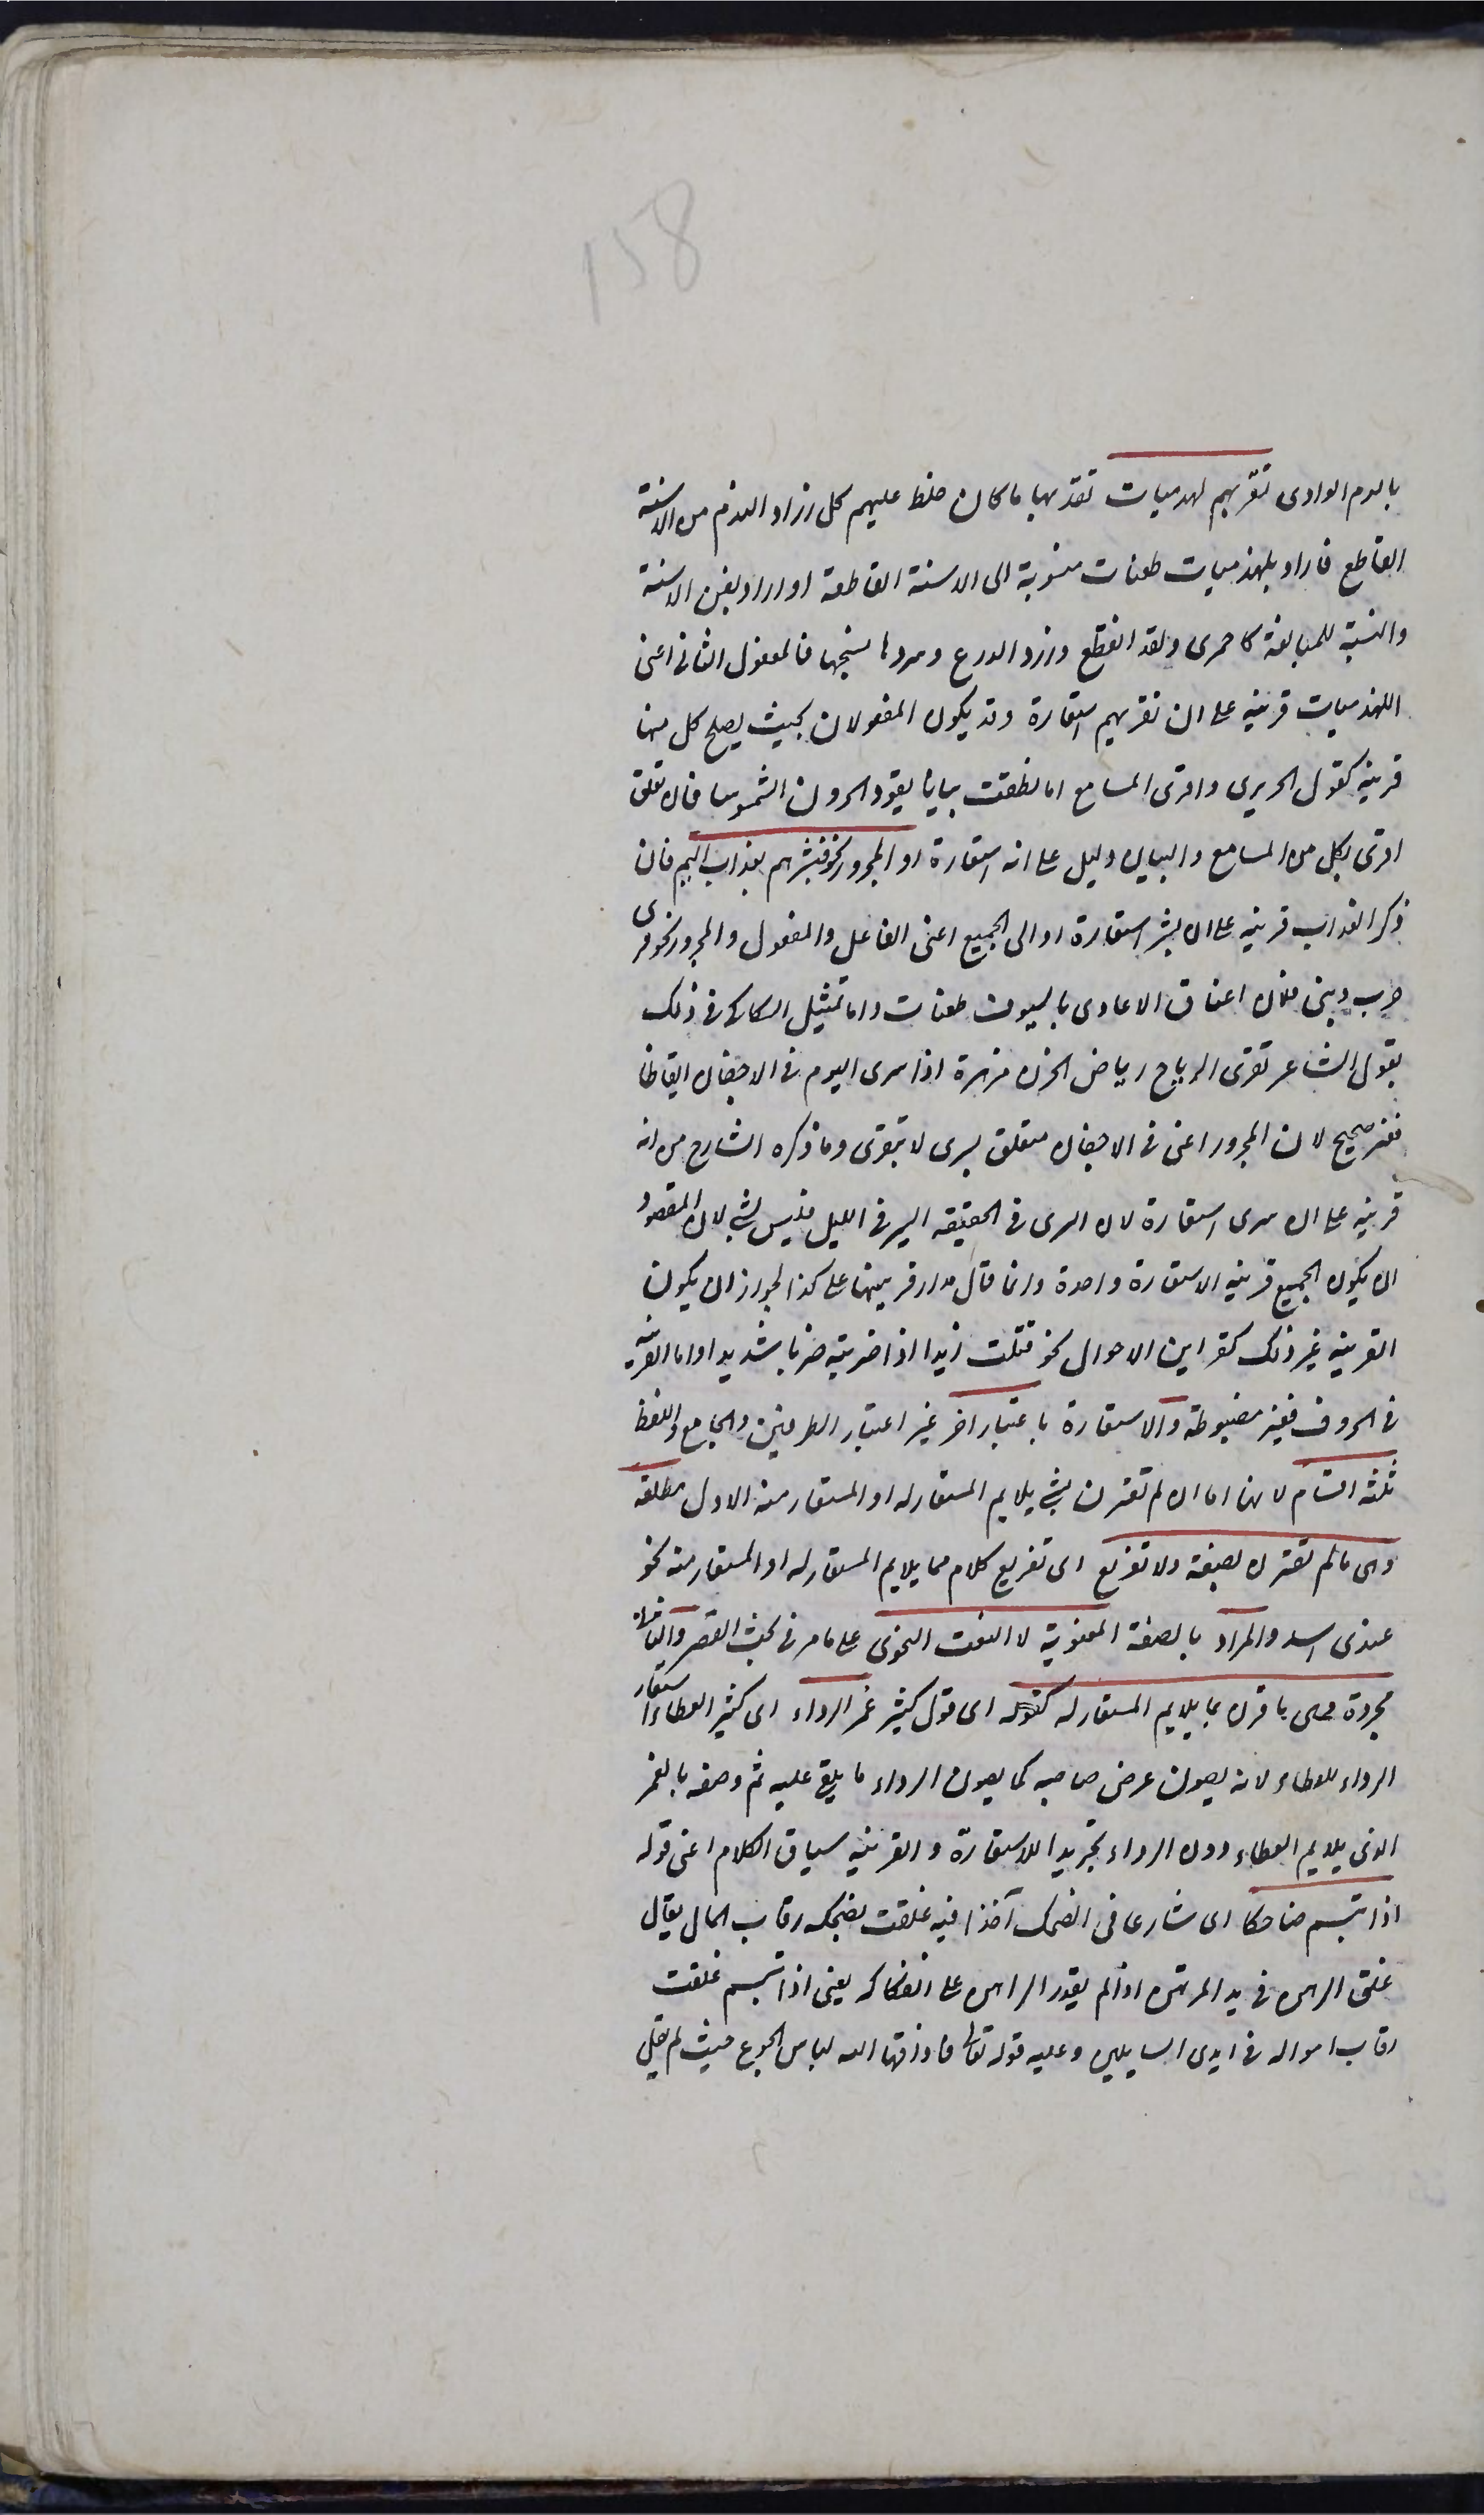 158
بالدم الوادى نقريهم لهذميات نقد بها ما كان خاط عليهم كل زراد اللهذم من الاسنة
القاطع فاراد بلهذميات طعنات منسوبة الى الاسنة القاطعة او اراد نفس الاسنة
والنسبة للمبالغة كاحمرى والقد القطع وزرد الدرع وسردها نسجها فالمفعول الثانى اعنى
اللهذميات قرينة على ان نقريهم استعارة وقد يكون المفعولان بحيث يصلح كل منهما
قرينة كقول الحريرى واقرى المسامع اما نطقت بيانا يقود الحرون الشموسا فان تعلق
اقرى بكل من المسامع والبيان دليل على انه استعارة او المجرور نحو فبشرهم بعذاب اليم فان
ذكر العذاب قرينة على ان بشر استعارة او الى الجميع اعنى الفاعل والمفعول والمجرور نحو قرى
حرب وبنى فلان اعناق الاعادى بالسيوف طعنات واما تمثيل السكاكى فى ذلك
بقول الشاعر تقرى الرياح رياض الحزن مزهرة اذا سرى النوم فى الاجفان ايقاظا
فغير صحيح لان المجرور اعنى فى الاجفان متعلق بسرى لا بتقرى وما ذكره الشارح من انه
قرينة على ان سرى استعارة لان السرى فى الحقيقة السير فى الليل فليس بشئ لان المقصود
ان يكون الجميع قرينة الاستعارة واحدة وانما قال مدار قرينتها على كذا لجواز ان يكون
القرينة غير ذلك كقراين الاحوال نحو قتلت زيدا اذا ضربته ضربا شديدا واما القرينة
فى الحروف فغير مضبوطة والاستعارة باعتبار اخر غير اعتبار الطرفين والجامع واللفظ
ثلثة اقسام لانها اما ان لم تقترن بشئ يلايم المستعار له او المستعار منه الاول مطلقة
وهى مالم تقترن بصفة ولا تفريع اى تفريع كلام مما يلايم المستعار له او المستعار منه نحو
عندى اسد والمراد بالصفة المعنوية لا النعت النحوى على ما مر فى بحث القصر والثانى
مجردة وهى ما قرن بما يلايم المستعار له كقوله اى قول كثير غمر الرداء اى كثير العطاء استعار
الرداء للعطاء لانه يصون عرض صاحبه كما يصون الرداء ما يلقى عليه ثم وصفه بالغمر
الذى يلايم العطاء دون الرداء تجريدا للاستعارة والقرينة سياق الكلام اعنى قوله
اذا تبسم ضاحكا اى شارعا فى الضحك آخذا فيه غلقت لضحكته رقاب المال يقال
غلق الرهن فى يد المرتهن اذا لم يقدر الراهن على انفكاكه يعنى اذا تبسم غلقت
رقاب امواله فى ايدى السايلين وعليه قوله تعالى فاذاقها الله لباس الجوع حيث لم يقل